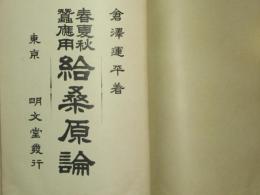 倉澤運平着
春夏秋
蠶應用
給桑原論
東京 明文堂發行